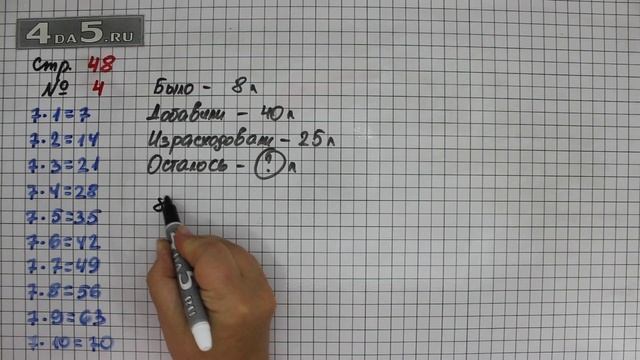 4DA5.RU
Стр. 48
№ 4
7·1=7
7·2=14
7·3=21
7·4=28
7·5=35
7·6=42
7·7=49
7·8=56
7·9=63
7·10=70
Было - 8 л
Добавили - 40 л
Израсходовали - 25 л
Осталось - ? л
8